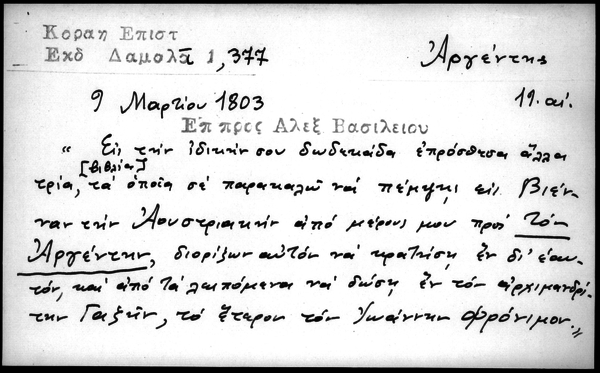 Κοραη Επιστ
Εκδ Δαμαλᾶ 1, 377
Ἀργέντης
9 Μαρτίου 1803
19. αἰ.
Επ προς Αλεξ Βασιλειου
" Εἰς τὴν ἰδικήν σου δωδεκάδα ἐπρόσθεσα ἄλλα
[βιβλία]
τρία, τὰ ὁποῖα σὲ παρακαλῶ νὰ πέμψῃς εἰς Βιέν-
ναν τὴν Ἀουστριακὴν ἀπὸ μέρους μου πρὸς τὸν
Ἀργέντην, διορίζων αὐτὸν νὰ κρατήσῃ ἓν δι' ἑαυ-
τόν, καὶ ἀπὸ τὰ λειπόμενα νὰ δώσῃ ἓν τὸν ἀρχιμανδρί-
την Γαζῆν, τὸ ἕτερον τὸν Ἰωάννην Φρόνιμον."